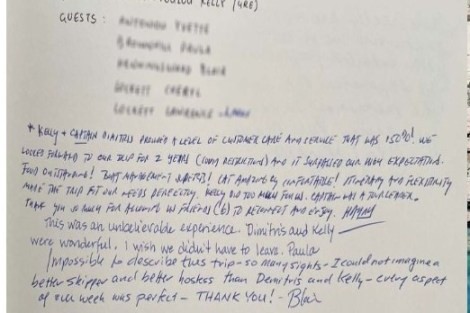 KELLY (GRE)
GUESTS:
YVETTE
PAULA
BLAIR
LOCKETT CHERYL
LOCKETT LAWRENCE
* KELLY + CAPTAIN DIMITRIS PROVIDED A LEVEL OF CUSTOMER CARE AND SERVICE THAT WAS 150%! WE
LOOKED FORWARD TO OUR TRIP FOR 2 YEARS (COVID RESTRICTIONS) AND IT SURPASSED OUR HIGH EXPECTATIONS.
FOOD OUTSTANDING! BOAT MANAGEMENT CAT AMAZINGLY COMFORTABLE! ITINERARY AND FLEXIBILITY
MADE THE TRIP FIT OUR NEEDS PERFECTLY. KELLY DID TOO MUCH FOR US. CAPTAIN WAS A
THANK YOU SO MUCH FOR ALLOWING US FRIENDS (6) TO RECONNECT AND ENJOY.
This was an unbelievable experience. Dimitris and Kelly
were wonderful. I wish we didn't have to leave. Paula
Impossible to describe this trip - so many sights - I could not imagine a
better skipper and better hostess than Demitris and Kelly - every aspect
of our week was perfect - THANK YOU! - Blair